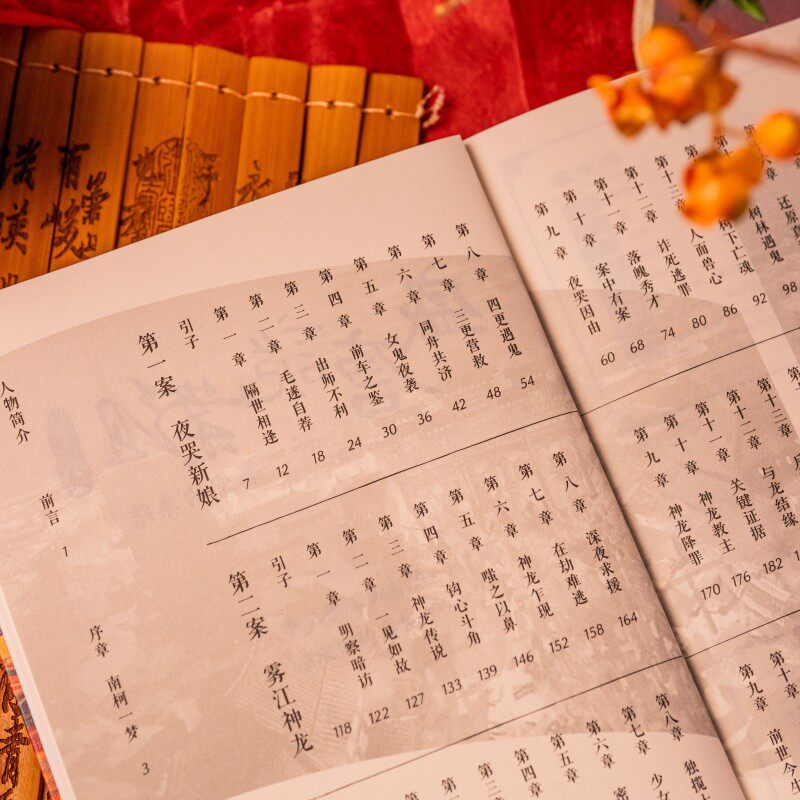 人物简介
前言 1
序章 南柯一梦 3
第一案 夜哭新娘
引子 7
第一章 隔世相逢 12
第二章 毛遂自荐 18
第三章 出师不利 24
第四章 前车之鉴 30
第五章 女鬼夜袭 36
第六章 同舟共济 42
第七章 三更营救 48
第八章 四更遇鬼 54
第二案 雾江神龙
引子 118
第一章 明察暗访 122
第二章 一见如故 127
第三章 神龙传说 133
第四章 钩心斗角 139
第五章 嗤之以鼻 146
第六章 神龙乍现 152
第七章 在劫难逃 158
第八章 深夜求援 164
第四章
第五章
第六章
第七章 少女
第八章 独揽
第九章 夜哭因由 60
第十章 案中有案 68
第十一章 落魄秀才 74
第十二章 诈死逃罪 80
第十三章 人面兽心 86
树下亡魂 92
树林遇鬼 98
还原
第九章 神龙降罪 170
第十章 神龙教主 176
第十一章 关键证据 182
第十二章 与龙结缘
第十三章
第九章 前世今生
第十章